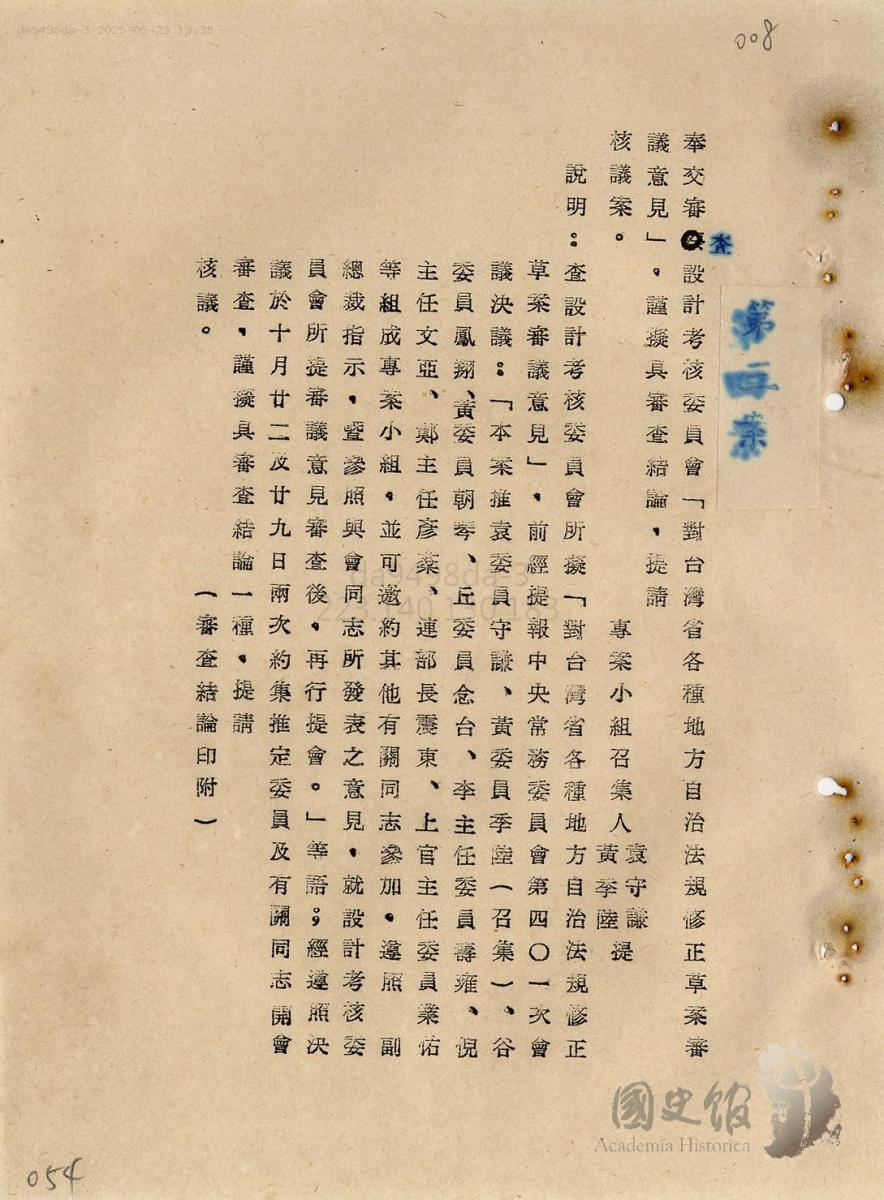 da9498da-3 2025-05-23 13:38
008
第 案
奉交審查設計考核委員會「對台灣省各種地方自治法規修正草案審
議意見」,謹擬具審查結論,提請
核議案。
專案小組召集人
袁守謙
黃季陸
提
說明:查設計考核委員會所擬「對台灣省各種地方自治法規修正
草案審議意見」,前經提報中央常務委員會第四〇一次會
議決議:「本案推袁委員守謙、黃委員季陸(召集)、谷
委員鳳翔、黃委員朝琴、丘委員念台、李主任委員壽雍、倪
主任文亞、鄭主任彥棻、連部長震東、上官主任委員業佑
等組成專案小組,並可邀約其他有關同志參加,遵照 副
總裁指示,暨參照與會同志所發表之意見,就設計考核委
員會所提審議意見審查後,再行提會。」等語;經遵照決
議於十月廿二及廿九日兩次約集推定委員及有關同志開會
審查,謹擬具審查結論一種,提請
核議。 (審查結論印附)
da9498da-3
國史館
Academia Historica
054